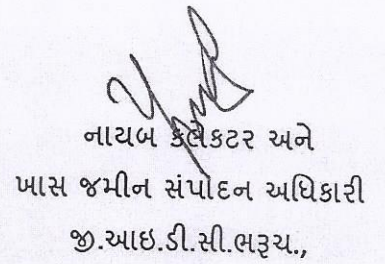 નાયબ કલેકટર અને
ખાસ જમીન સંપાદન અધિકારી
જી.આઇ.ડી.સી.ભરૂચ.,